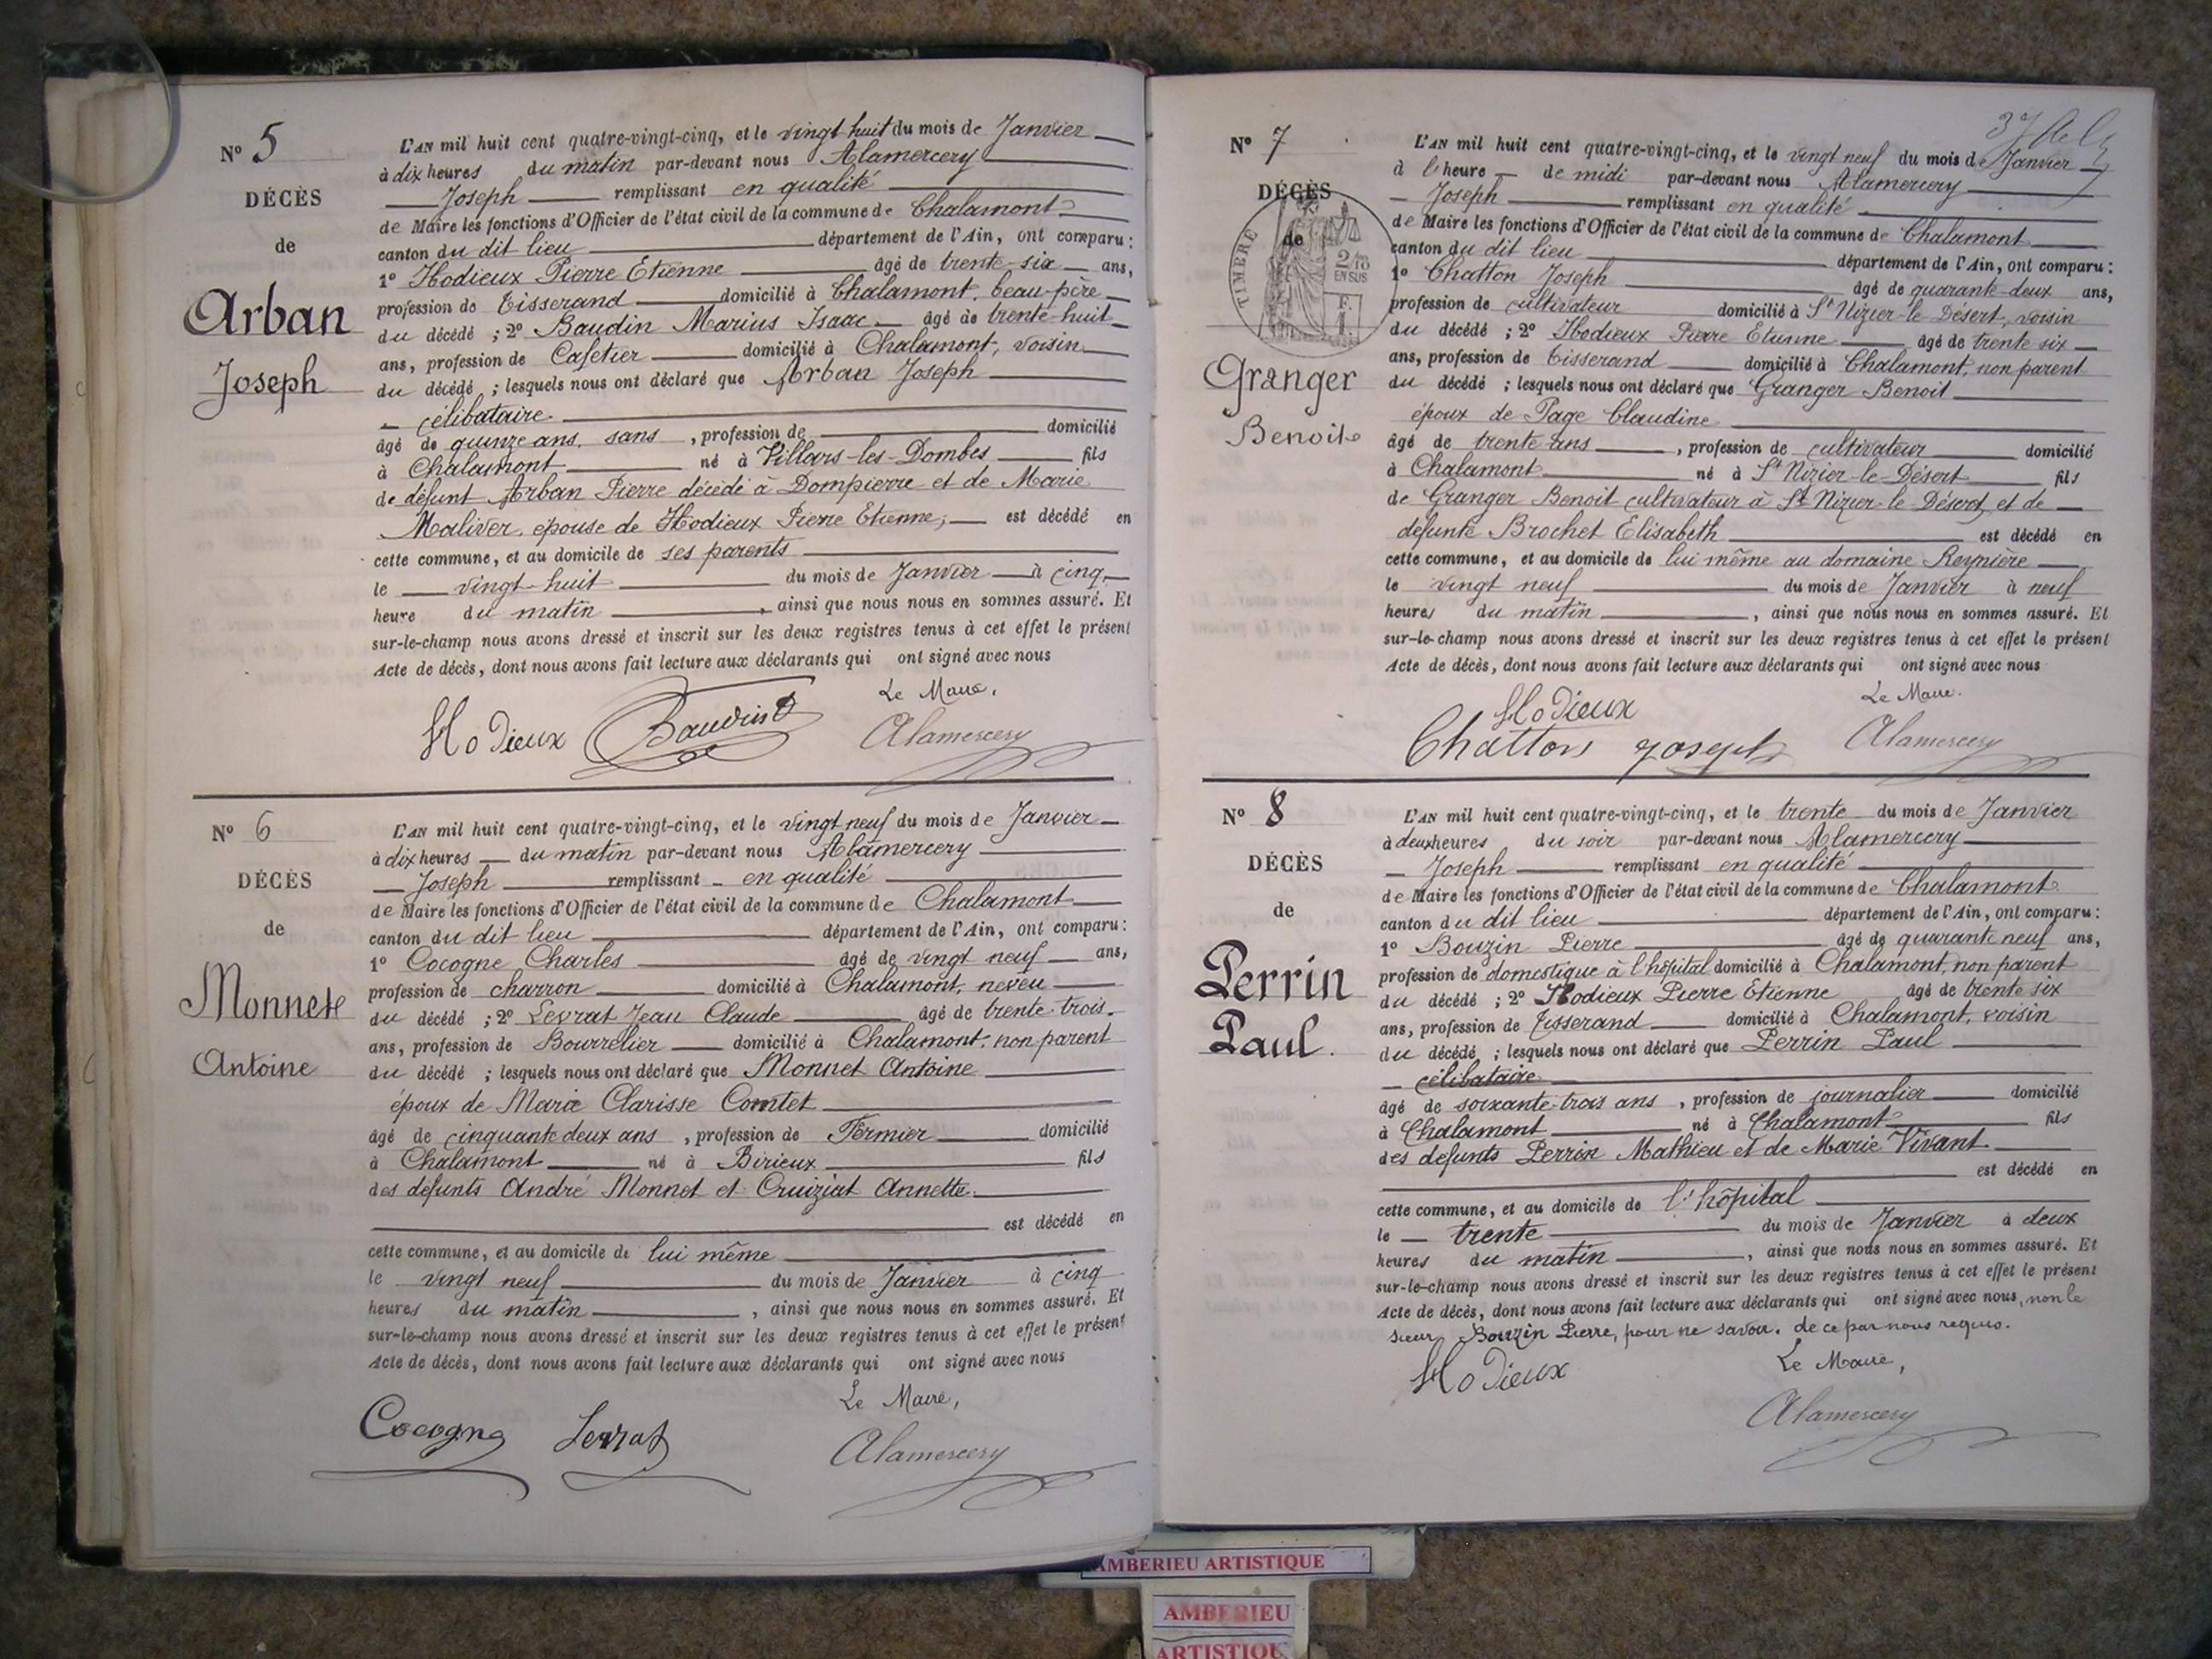 N° 5
DÉCÈS
de
Arban
Joseph
L'AN mil huit cent quatre-vingt-cinq, et le vingt huit du mois de Janvier
à dix heures du matin par-devant nous Alamercery
Joseph remplissant en qualité
de Maire les fonctions d'Officier de l'état civil de la commune de Chalamont
canton du dit lieu département de l'Ain, ont comparu :
1° Hodieux Pierre Etienne âgé de trente-six ans,
profession de Tisserand domicilié à Chalamont, beau-père
du décédé ; 2° Baudin Marius Isaac âgé de trente-huit
ans, profession de Cafetier domicilié à Chalamont, voisin
du décédé ; lesquels nous ont déclaré que Arban Joseph
célibataire
âgé de quinze ans, sans , profession de domicilié
à Chalamont né à Villars-les-Dombes fils
de défunt Arban Pierre décédé à Dompierre et de Marie
Maliver, épouse de Hodieux Pierre Etienne, est décédé en
cette commune, et au domicile de ses parents
le vingt-huit du mois de Janvier à cinq
heure du matin , ainsi que nous nous en sommes assuré. Et
sur-le-champ nous avons dressé et inscrit sur les deux registres tenus à cet effet le présent
Acte de décès, dont nous avons fait lecture aux déclarants qui ont signé avec nous
Le Maire,
Hodieux Baudin Alamercery
N° 6
DÉCÈS
de
Monnet
Antoine
L'AN mil huit cent quatre-vingt-cinq, et le vingt neuf du mois de Janvier
à dix heures du matin par-devant nous Alamercery
Joseph remplissant en qualité
de Maire les fonctions d'Officier de l'état civil de la commune de Chalamont
canton du dit lieu département de l'Ain, ont comparu :
1° Cocogne Charles âgé de vingt neuf ans,
profession de charron domicilié à Chalamont, neveu
du décédé ; 2° Levrat Jean Claude âgé de trente-trois
ans, profession de Bourrelier domicilié à Chalamont, non parent
du décédé ; lesquels nous ont déclaré que Monnet Antoine
époux de Marie Clarisse Comtet
âgé de cinquante deux ans , profession de Fermier domicilié
à Chalamont né à Birieux fils
des défunts André Monnet et Cruiziat Annette
est décédé en
cette commune, et au domicile de lui même
le vingt neuf du mois de Janvier à cinq
heures du matin , ainsi que nous nous en sommes assuré. Et
sur-le-champ nous avons dressé et inscrit sur les deux registres tenus à cet effet le présent
Acte de décès, dont nous avons fait lecture aux déclarants qui ont signé avec nous
Le Maire,
Cocogne Levrat Alamercery
N° 7
DÉCÈS
de
TIMBRE
2/10
EN SUS
Granger
Benoit
L'AN mil huit cent quatre-vingt-cinq, et le vingt neuf du mois de Janvier
à l'heure de midi par-devant nous Alamercery
Joseph remplissant en qualité
de Maire les fonctions d'Officier de l'état civil de la commune de Chalamont
canton du dit lieu département de l'Ain, ont comparu :
1° Chatton Joseph âgé de quarante-deux ans,
profession de cultivateur domicilié à St Nizier-le-Désert, voisin
du décédé ; 2° Hodieux Pierre Etienne âgé de trente six
ans, profession de Tisserand domicilié à Chalamont, non parent
du décédé ; lesquels nous ont déclaré que Granger Benoit
époux de Page Claudine
âgé de trente ans , profession de cultivateur domicilié
à Chalamont né à St Nizier-le-Désert fils
de Granger Benoit cultivateur à St Nizier-le-Désert, et de
défunte Brochet Elisabeth est décédé en
cette commune, et au domicile de lui même au domaine Reynière
le vingt neuf du mois de Janvier à neuf
heures du matin , ainsi que nous nous en sommes assuré. Et
sur-le-champ nous avons dressé et inscrit sur les deux registres tenus à cet effet le présent
Acte de décès, dont nous avons fait lecture aux déclarants qui ont signé avec nous
Le Maire.
Hodieux
Chatton Joseph Alamercery
N° 8
DÉCÈS
de
Perrin
Paul.
L'AN mil huit cent quatre-vingt-cinq, et le trente du mois de Janvier
à deux heures du soir par-devant nous Alamercery
Joseph remplissant en qualité
de Maire les fonctions d'Officier de l'état civil de la commune de Chalamont
canton du dit lieu département de l'Ain, ont comparu :
1° Bouzin Pierre âgé de quarante neuf ans,
profession de domestique à l'hôpital domicilié à Chalamont, non parent
du décédé ; 2° Hodieux Pierre Etienne âgé de trente six
ans, profession de Tisserand domicilié à Chalamont, voisin
du décédé ; lesquels nous ont déclaré que Perrin Paul
célibataire
âgé de soixante-trois ans , profession de journalier domicilié
à Chalamont né à Chalamont fils
des défunts Perrin Mathieu et de Marie Vivant
est décédé en
cette commune, et au domicile de l'hôpital
le trente du mois de Janvier à deux
heures du matin , ainsi que nous nous en sommes assuré. Et
sur-le-champ nous avons dressé et inscrit sur les deux registres tenus à cet effet le présent
Acte de décès, dont nous avons fait lecture aux déclarants qui ont signé avec nous, non le
sieur Bouzin Pierre, pour ne savoir, de ce par nous requis.
Le Maire,
Hodieux Alamercery
AMBERIEU ARTISTIQUE
AMBERIEU
ARTISTIQUE